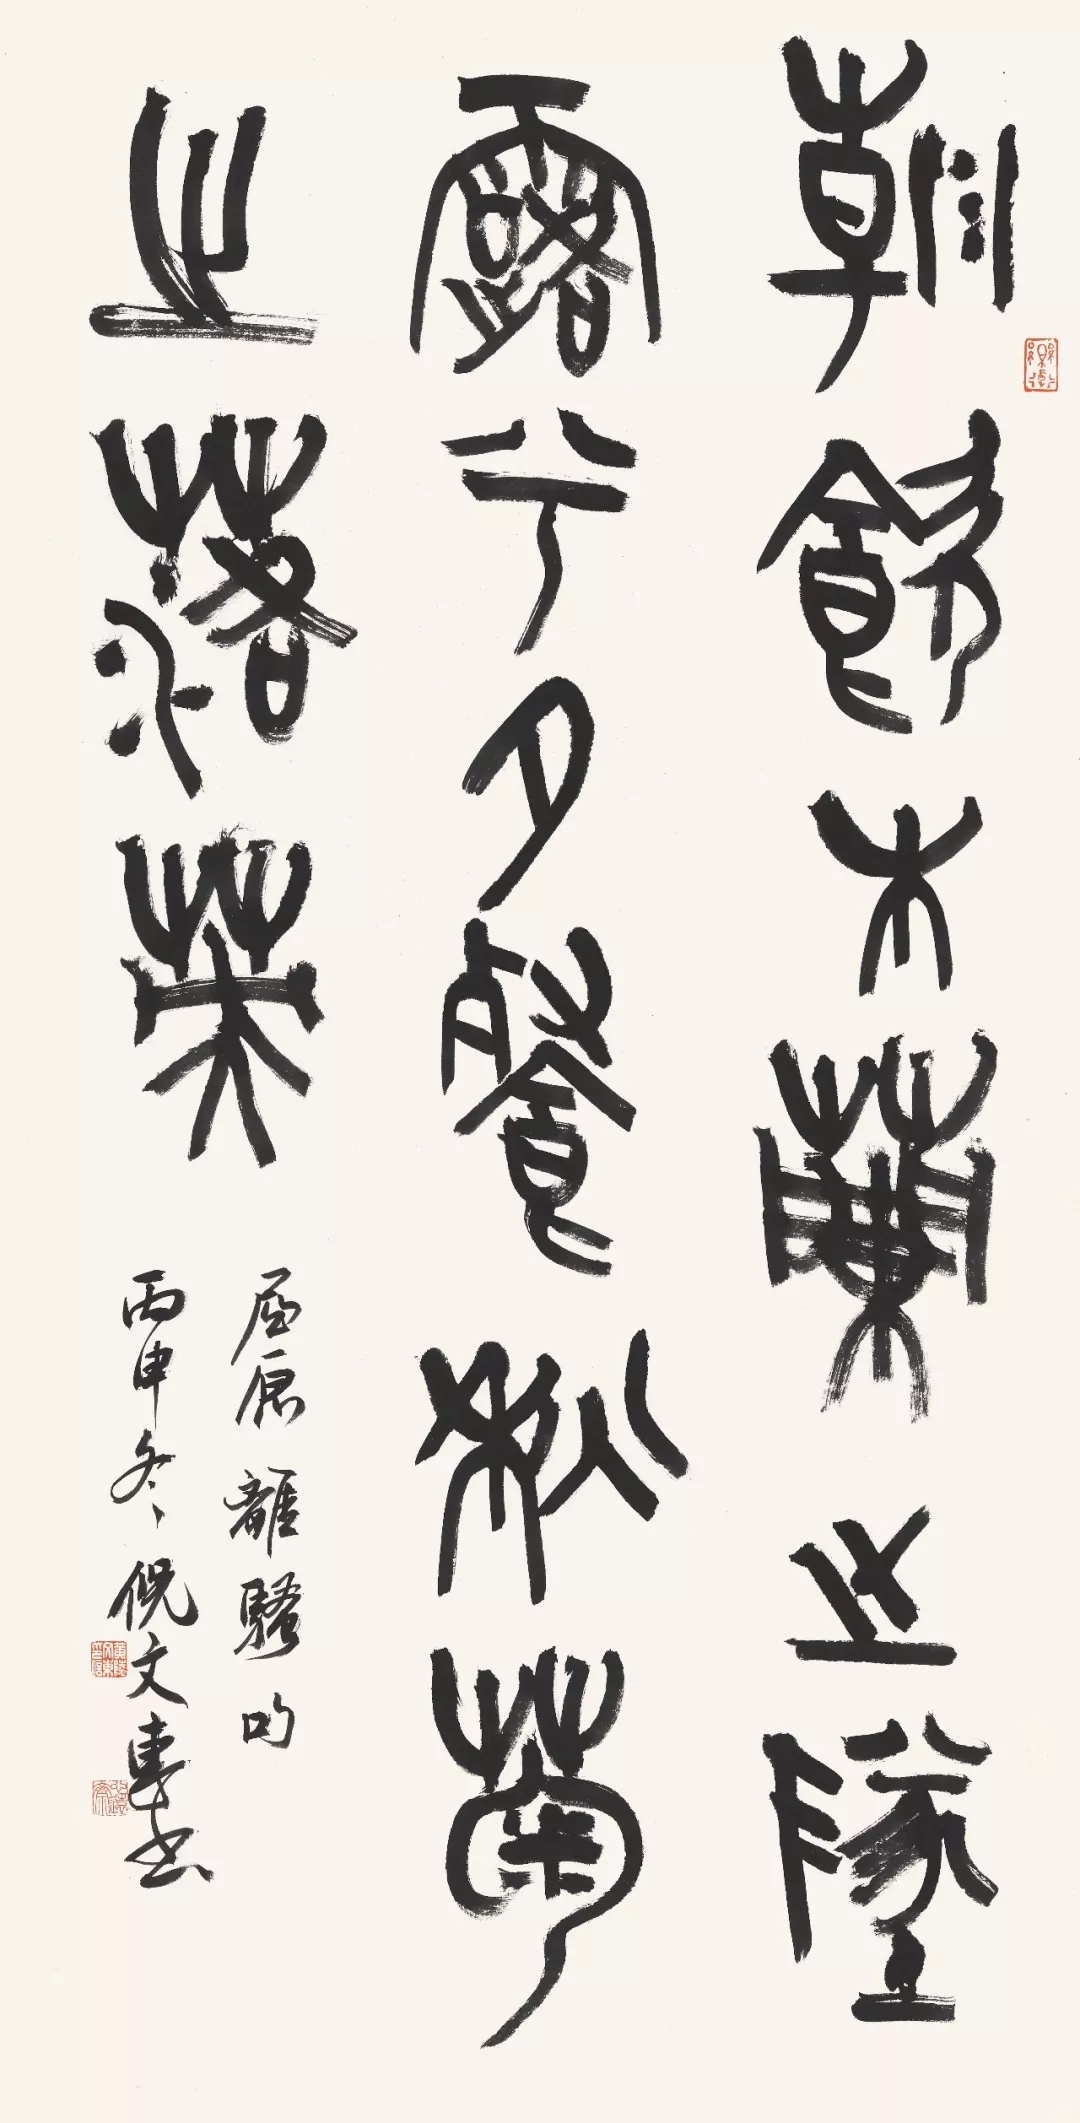 朝飲木蘭之墜
露兮夕餐秋菊
之落英
屈原離騷句
丙申冬倪文東書